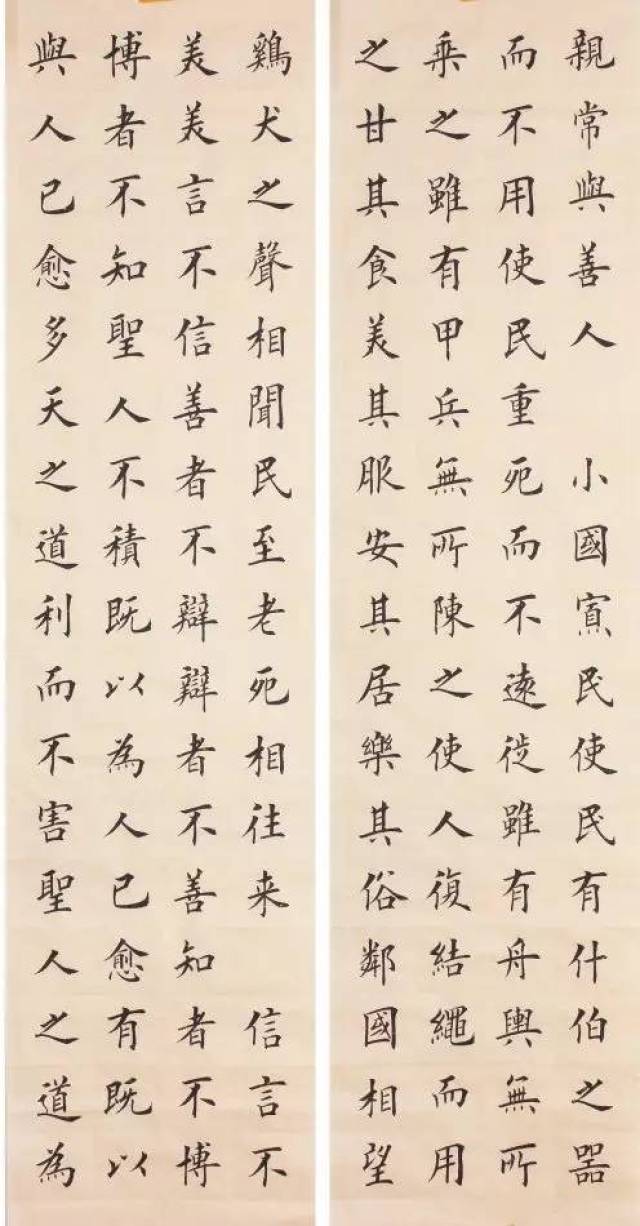 親常與善人 小國寡民使民有什伯之器
而不用使民重死而不遠徙雖有舟輿無所
乗之雖有甲兵無所陳之使人復結繩而用
之甘其食美其服安其居樂其俗鄰國相望
鷄犬之聲相聞民至老死相往来 信言不
美美言不信善者不辯辯者不善知者不博
博者不知聖人不積既以為人已愈有既以
與人已愈多天之道利而不害聖人之道為